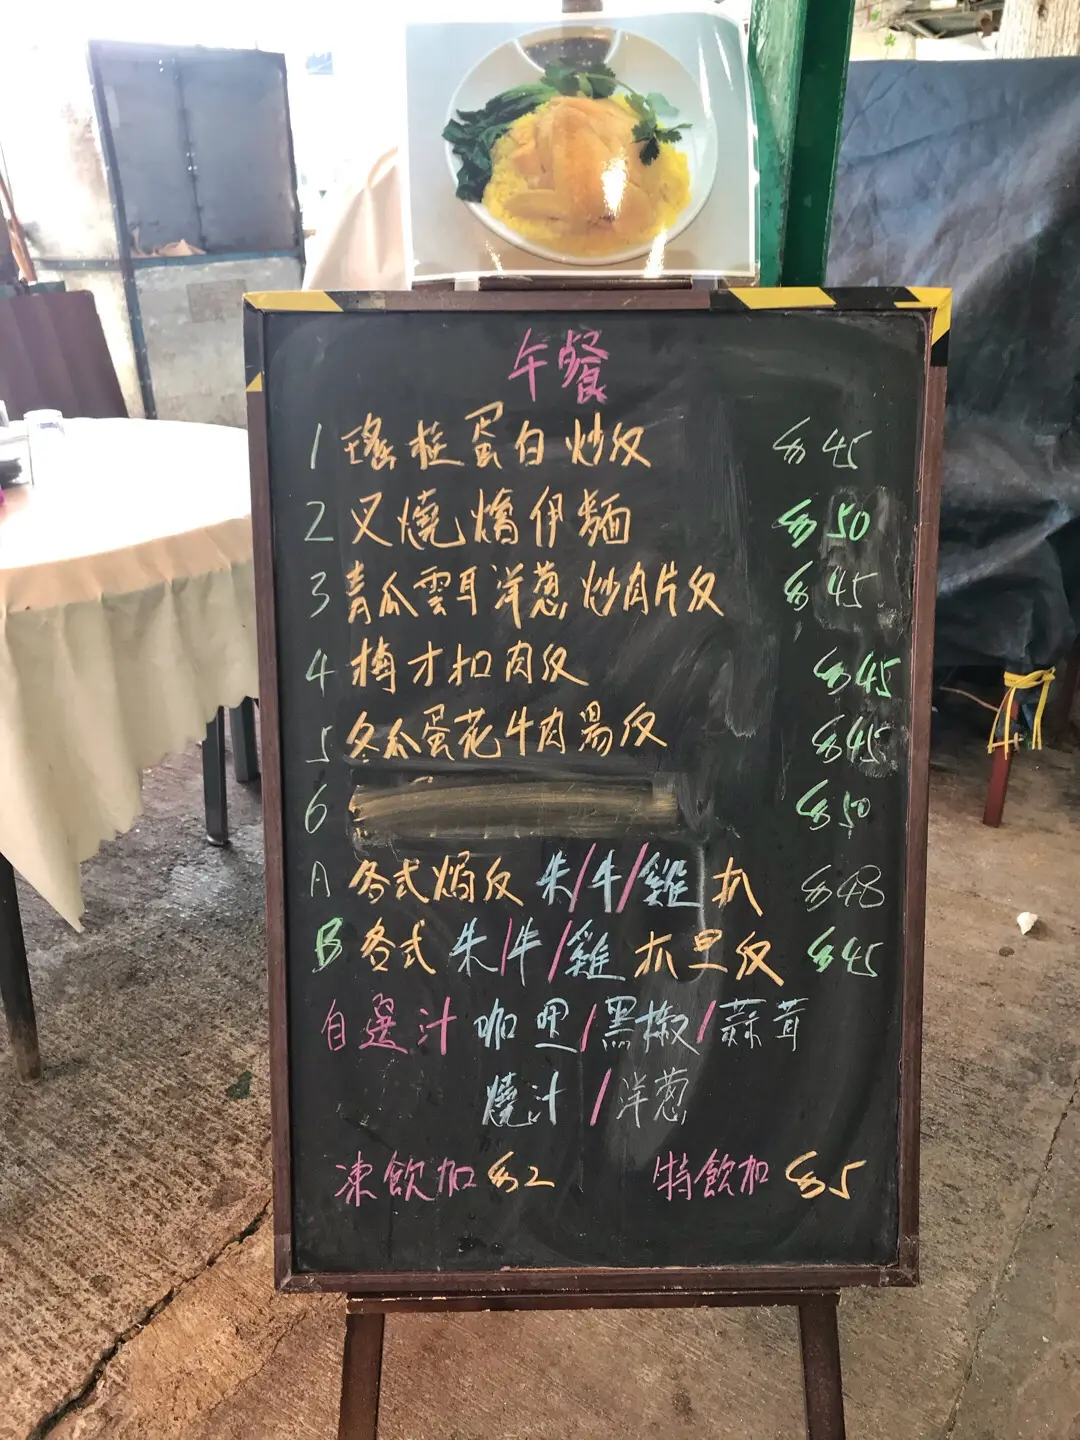 午餐
1 瑤柱蛋白炒反 $45
2 叉燒燴伊麵 $50
3 青瓜雲耳洋葱炒肉片反 $45
4 梅才扣肉反 $45
5 冬瓜蛋花牛肉湯反 $45
6 $50
A 各式焗反 朱/牛/雞 扒 $48
B 各式 朱/牛/雞 扒里反 $45
自選汁 咖喱/黑椒/蒜茸
燒汁/洋葱
凍飲加 $2 特飲加 $5